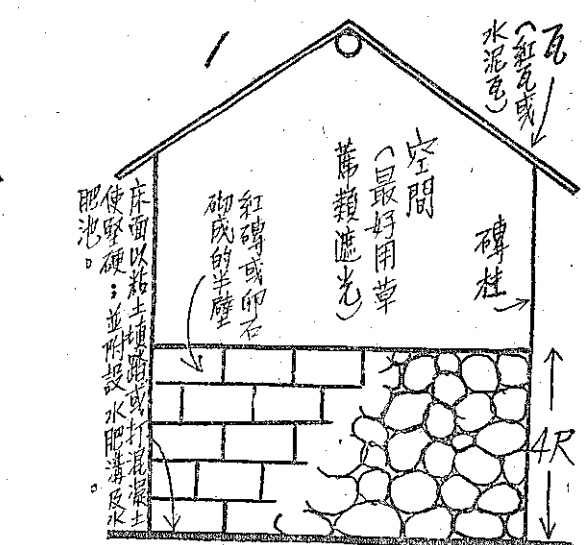 瓦
(紅瓦或
水泥瓦)
磚柱
空間
(最好用草
蓆類遮光)
紅磚或卵石
砌成的半壁
床面以粘土填踏或打混凝土
使堅硬；並附設水肥溝及水
肥池。
4R